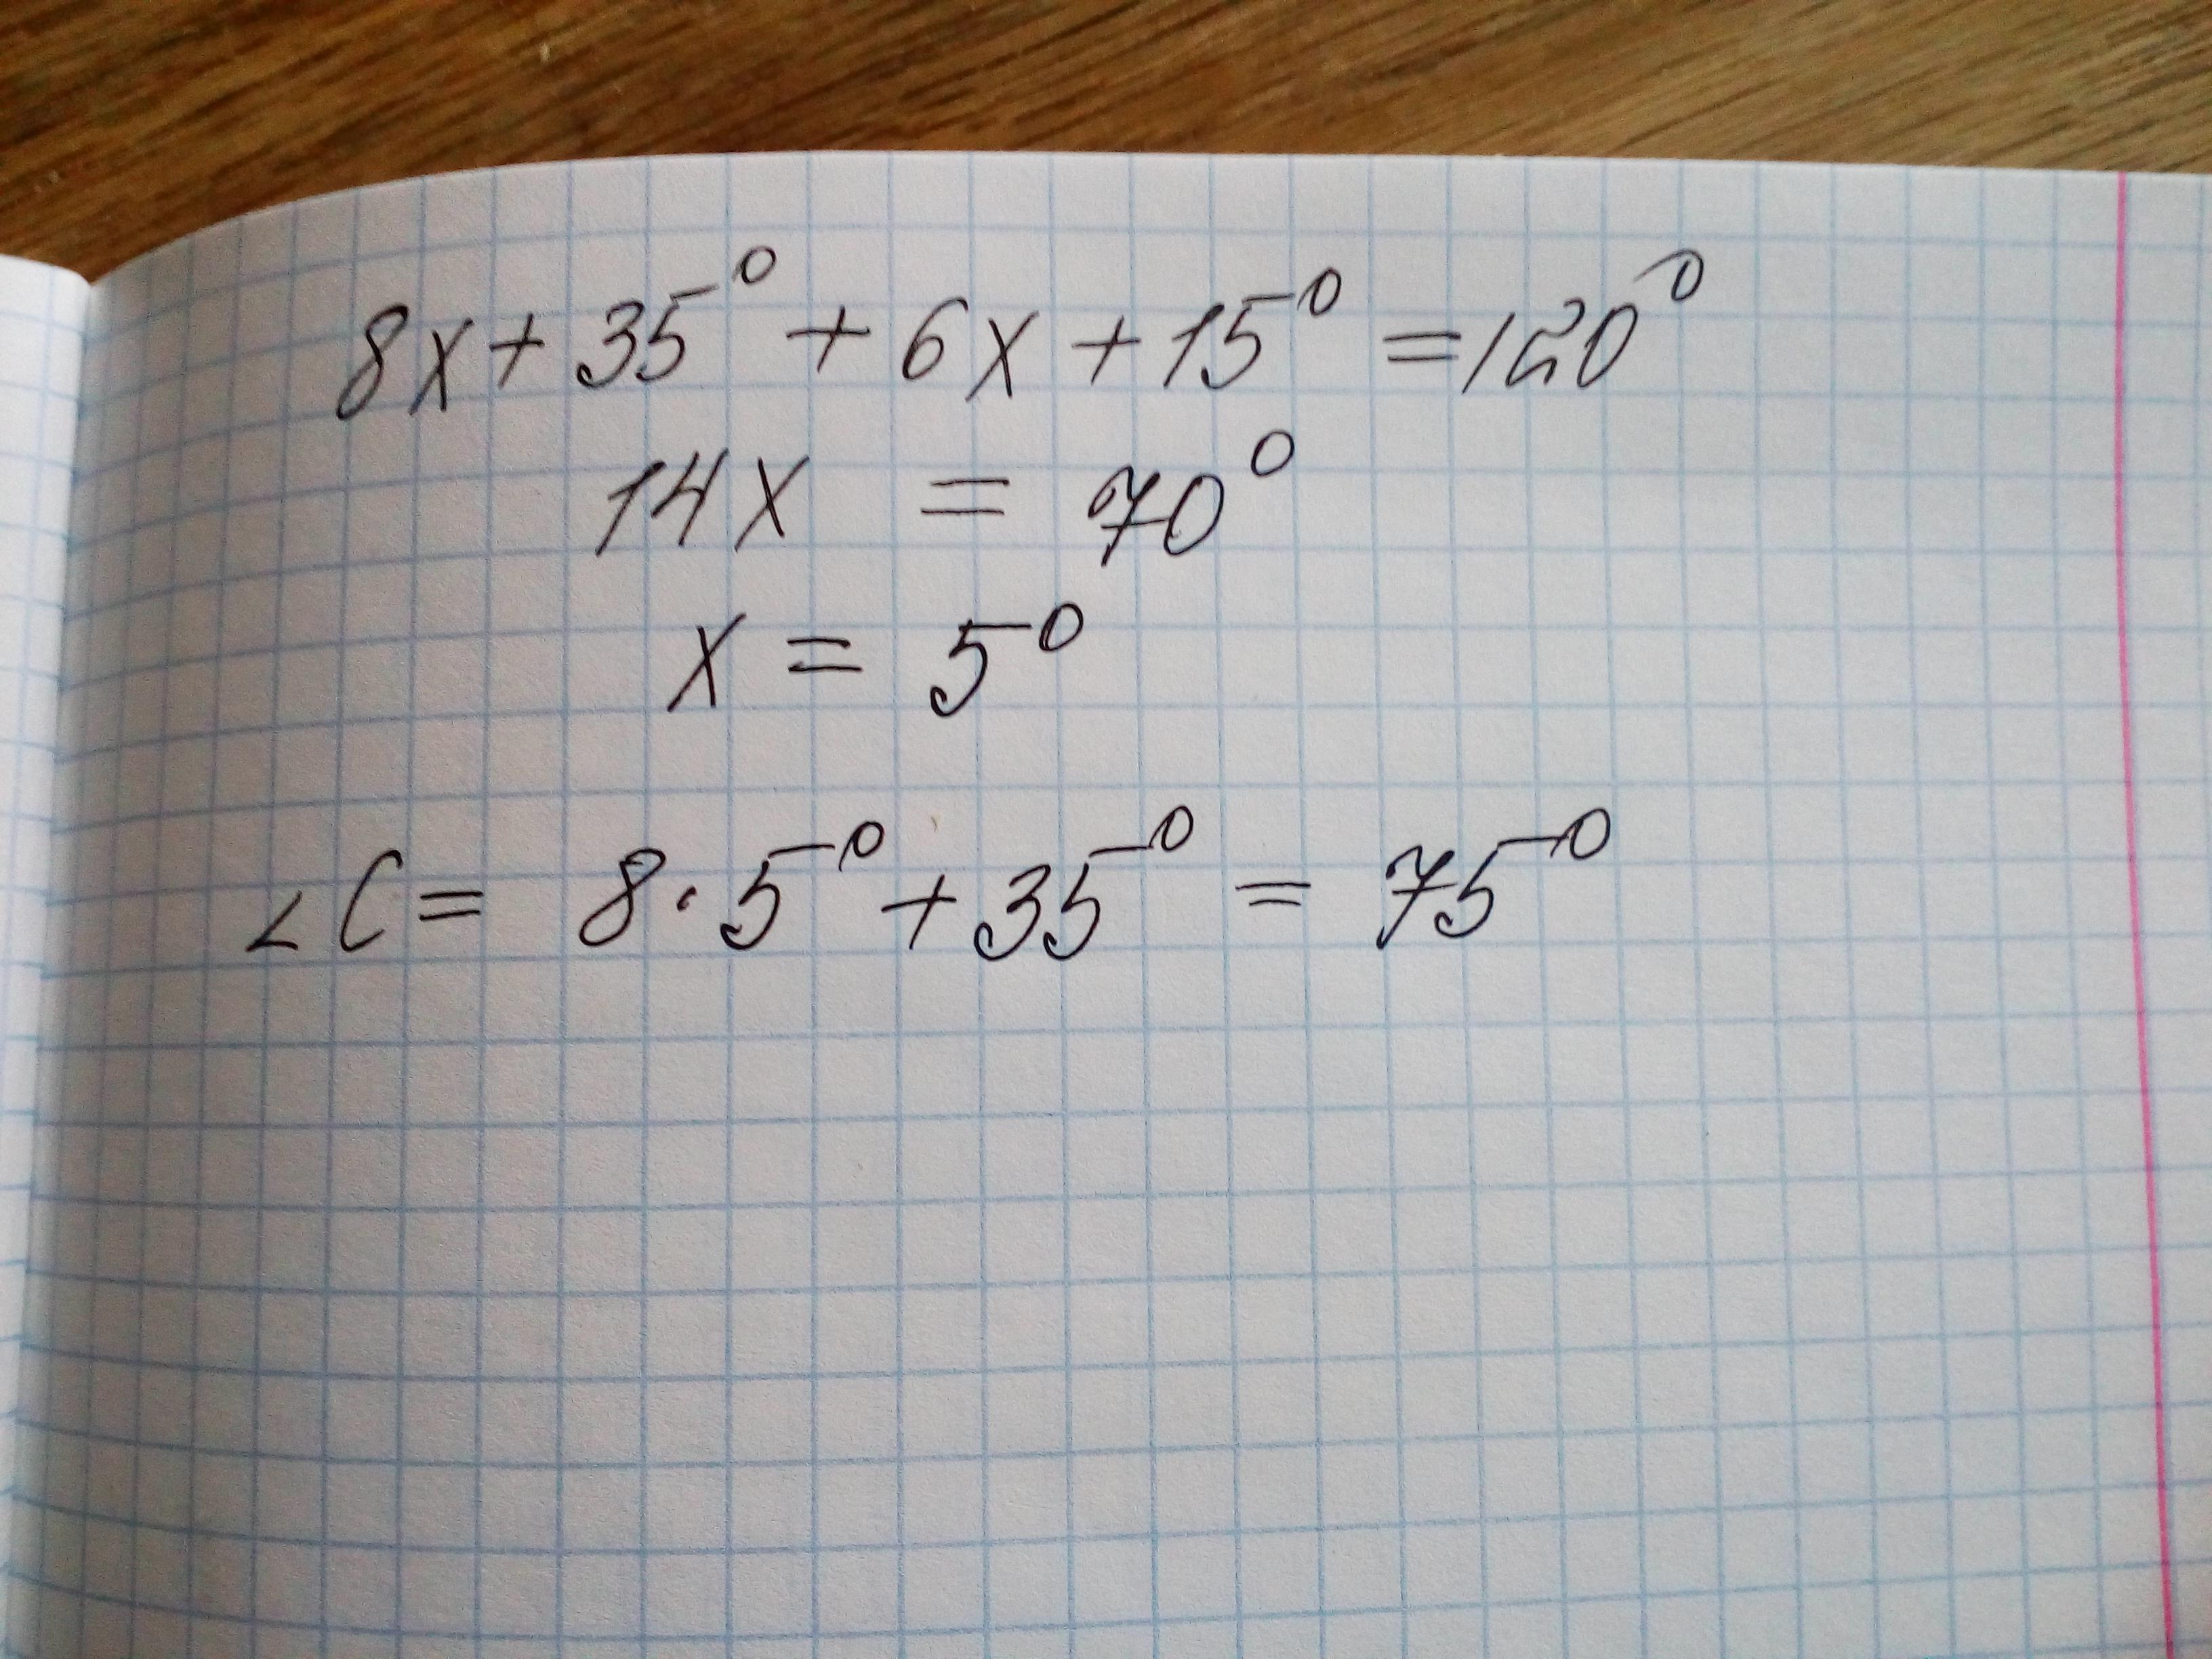 8x + 35° + 6x + 15° = 120°
14x = 70°
x = 5°
∠C = 8 · 5° + 35° = 75°